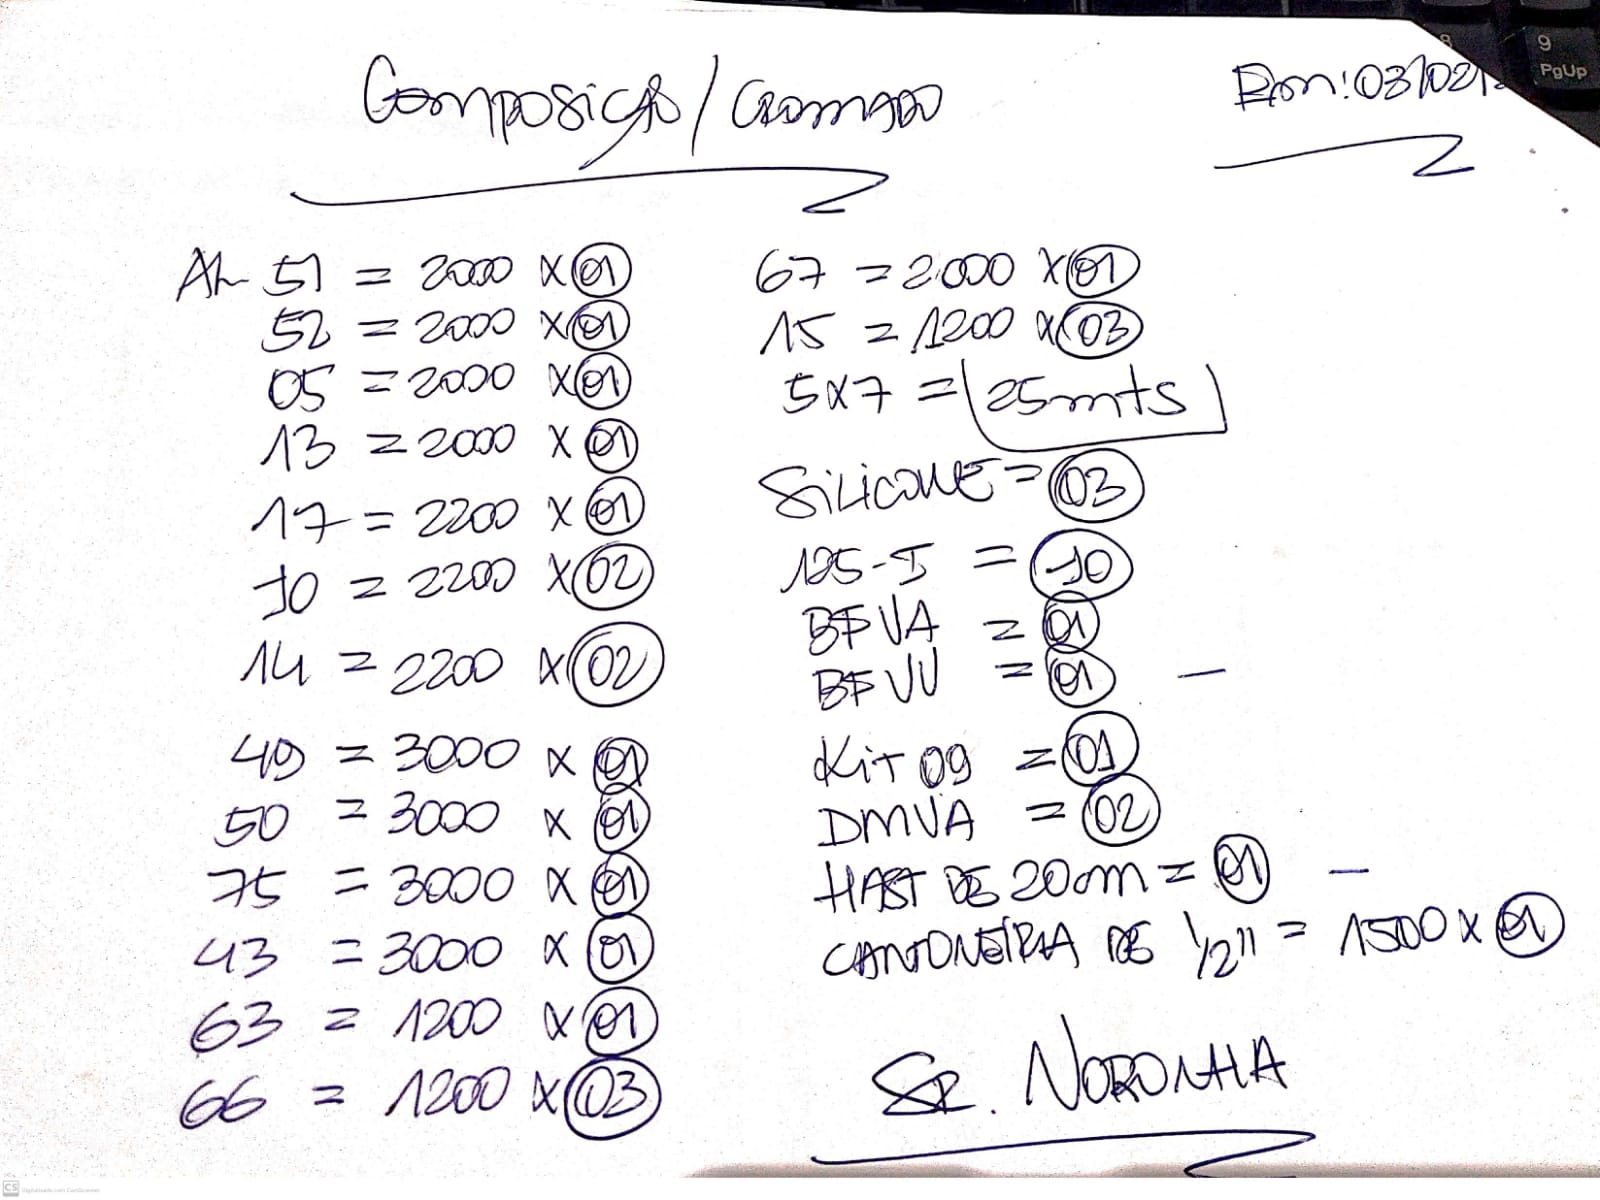 Composição / Cromado
Em: 03/02/
AL 51 = 2000 x 01
52 = 2000 x 01
05 = 2000 x 01
13 = 2000 x 01
17 = 2200 x 01
10 = 2200 x 02
14 = 2200 x 02
49 = 3000 x 01
50 = 3000 x 01
75 = 3000 x 01
43 = 3000 x 01
63 = 1200 x 01
66 = 1200 x 03
67 = 2000 x 01
15 = 1200 x 03
5x7 = 25mts
SILICONE = 03
125-I = 10
BFVA = 01
BFVV = 01 -
Kit 09 = 01
DMVA = 02
HAST DE 20cm = 01 -
CANTONEIRA DE 1/2" = 1500 x 01
SR. NORONHA
9
PgUp
CS Digitalizado com CamScanner